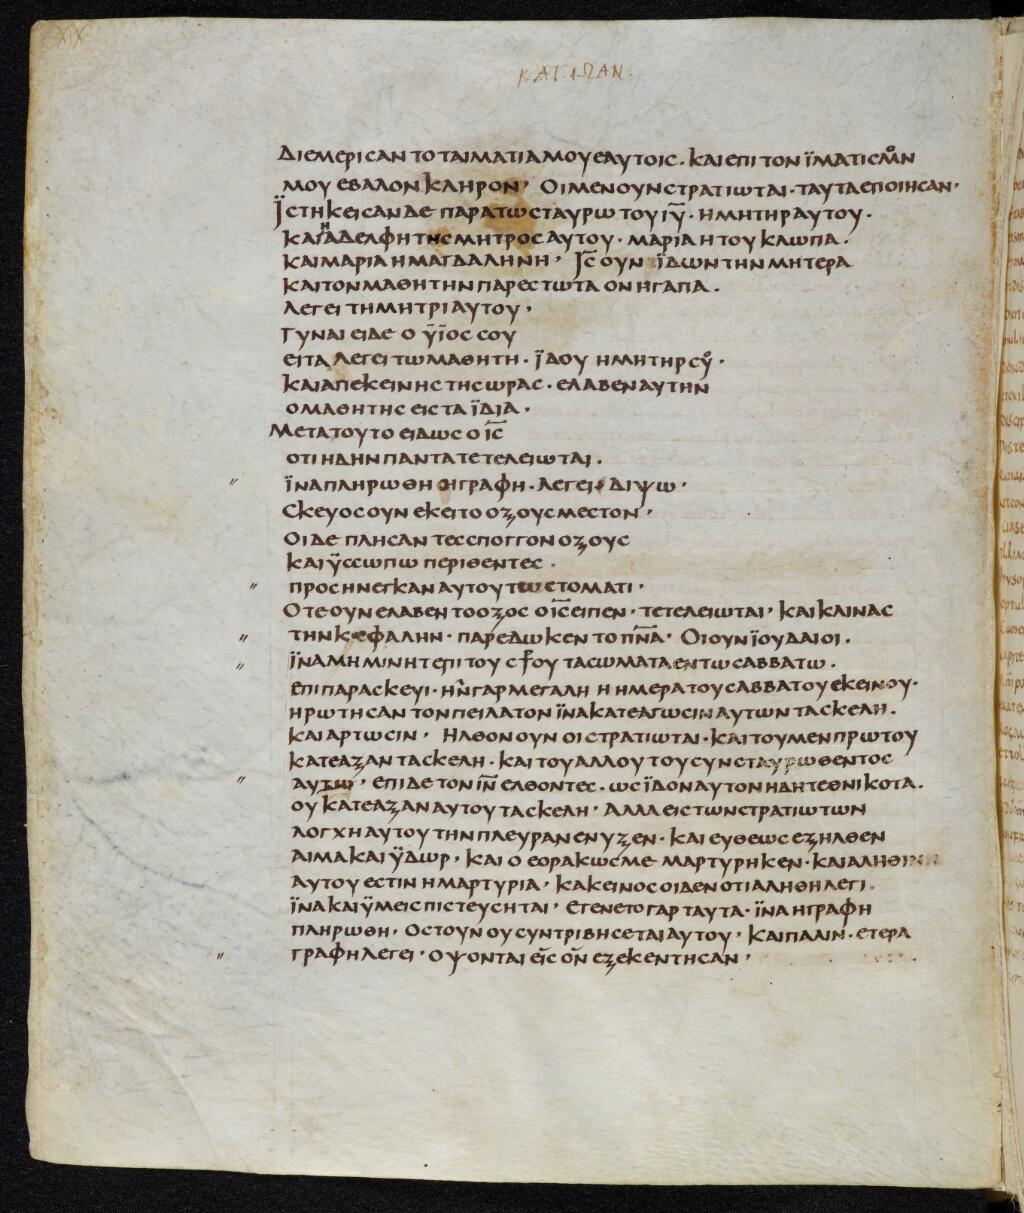 XIX
ΚΑΤ.ΙΩΑΝ.
ΔΙΕΜΕΡΙCΑΝΤΟΤΑΙΜΑΤΙΑΜΟΥΕΑΥΤΟΙC·ΚΑΙΕΠΙΤΟΝΪΜΑΤΙCΜΟΝ
ΜΟΥΕΒΑΛΟΝΚΛΗΡΟΝ· ΟΙΜΕΝΟΥΝCΤΡΑΤΙΩΤΑΙ·ΤΑΥΤΑΕΠΟΙΗCΑΝ·
ΪCΤΗΚΕΙCΑΝΔΕΠΑΡΑΤΩCΤΑΥΡΩΤΟΥΙ̅Υ̅·ΗΜΗΤΗΡΑΥΤΟΥ·
ΚΑΙΗΑΔΕΛΦΗΤΗCΜΗΤΡΟCΑΥΤΟΥ·ΜΑΡΙΑΗΤΟΥΚΛΩΠΑ·
ΚΑΙΜΑΡΙΑΗΜΑΓΔΑΛΗΝΗ· Ι̅C̅ΟΥΝΪΔΩΝΤΗΝΜΗΤΕΡΑ
ΚΑΙΤΟΝΜΑΘΗΤΗΝΠΑΡΕCΤΩΤΑΟΝΗΓΑΠΑ·
ΛΕΓΕΙΤΗΜΗΤΡΙΑΥΤΟΥ·
ΓΥΝΑΙΕΙΔΕΟΫΪΟCCΟΥ
ΕΙΤΑΛΕΓΕΙΤΩΜΑΘΗΤΗ·ΪΔΟΥΗΜΗΤΗΡCΟΥ·
ΚΑΙΑΠΕΚΕΙΝΗCΤΗCΩΡΑC·ΕΛΑΒΕΝΑΥΤΗΝ
ΟΜΑΘΗΤΗCΕΙCΤΑΪΔΙΑ·
ΜΕΤΑΤΟΥΤΟΕΙΔΩCΟΙ̅C̅
ΟΤΙΗΔΗΝΠΑΝΤΑΤΕΤΕΛΕΙΩΤΑΙ·
ΪΝΑΠΛΗΡΩΘΗΗΓΡΑΦΗ·ΛΕΓΕΙΔΙΨΩ·
CΚΕΥΟCΟΥΝΕΚΕΙΤΟΟΖΟΥCΜΕCΤΟΝ·
ΟΙΔΕΠΛΗCΑΝΤΕCCΠΟΓΓΟΝΟΖΟΥC
ΚΑΙΫCCΩΠΩΠΕΡΙΘΕΝΤΕC·
ΠΡΟCΗΝΕΓΚΑΝΑΥΤΟΥΤΩCΤΟΜΑΤΙ·
ΟΤΕΟΥΝΕΛΑΒΕΝΤΟΟΖΟCΟΙ̅C̅ΕΙΠΕΝ·ΤΕΤΕΛΕΙΩΤΑΙ·ΚΑΙΚΛΙΝΑC
ΤΗΝΚΕΦΑΛΗΝ·ΠΑΡΕΔΩΚΕΝΤΟΠ̅Ν̅Α̅· ΟΙΟΥΝΪΟΥΔΑΙΟΙ·
ΪΝΑΜΗΜΙΝΗΤΕΠΙΤΟΥC⳨ΟΥΤΑCΩΜΑΤΑΕΝΤΩCΑΒΒΑΤΩ·
ΕΠΙΠΑΡΑCΚΕΥΙ·ΗΝΓΑΡΜΕΓΑΛΗΗΗΜΕΡΑΤΟΥCΑΒΒΑΤΟΥΕΚΕΙΝΟΥ·
ΗΡΩΤΗCΑΝΤΟΝΠΕΙΛΑΤΟΝΪΝΑΚΑΤΕΑΓΩCΙΝΑΥΤΩΝΤΑCΚΕΛΗ·
ΚΑΙΑΡΤΩCΙΝ· ΗΛΘΟΝΟΥΝΟΙCΤΡΑΤΙΩΤΑΙ·ΚΑΙΤΟΥΜΕΝΠΡΩΤΟΥ
ΚΑΤΕΑΞΑΝΤΑCΚΕΛΗ·ΚΑΙΤΟΥΑΛΛΟΥΤΟΥCΥΝCΤΑΥΡΩΘΕΝΤΟC
ΑΥΤΩ·ΕΠΙΔΕΤΟΝΙ̅Ν̅ΕΛΘΟΝΤΕC·ΩCΪΔΟΝΑΥΤΟΝΗΔΗΤΕΘΝΙΚΟΤΑ·
ΟΥΚΑΤΕΑΞΑΝΑΥΤΟΥΤΑCΚΕΛΗ·ΑΛΛΑΕΙCΤΩΝCΤΡΑΤΙΩΤΩΝ
ΛΟΓΧΗΑΥΤΟΥΤΗΝΠΛΕΥΡΑΝΕΝΥΞΕΝ·ΚΑΙΕΥΘΕΩCΕΞΗΛΘΕΝ
ΑΙΜΑΚΑΙΫΔΩΡ·ΚΑΙΟΕΟΡΑΚΩCΜΕΜΑΡΤΥΡΗΚΕΝ·ΚΑΙΑΛΗΘΙΝΗ
ΑΥΤΟΥΕCΤΙΝΗΜΑΡΤΥΡΙΑ·ΚΑΚΕΙΝΟCΟΙΔΕΝΟΤΙΑΛΗΘΗΛΕΓΙ·
ΪΝΑΚΑΙΫΜΕΙCΠΙCΤΕΥCΗΤΑΙ·ΕΓΕΝΕΤΟΓΑΡΤΑΥΤΑ·ΪΝΑΗΓΡΑΦΗ
ΠΛΗΡΩΘΗ·ΟCΤΟΥΝΟΥCΥΝΤΡΙΒΗCΕΤΑΙΑΥΤΟΥ·ΚΑΙΠΑΛΙΝ·ΕΤΕΡΑ
ΓΡΑΦΗΛΕΓΕΙ·ΟΨΟΝΤΑΙΕΙCΟΝΕΞΕΚΕΝΤΗCΑΝ·